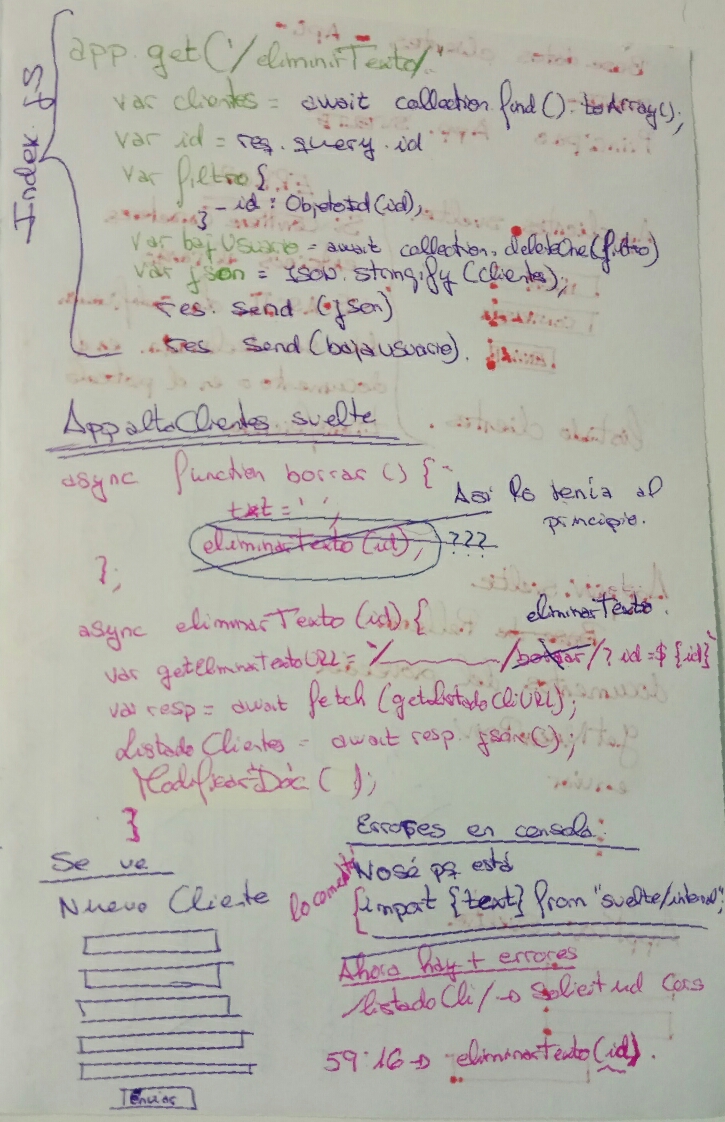 Index.JS
app.get('/eliminarTexto/'
var clientes = await collection.find().toArray();
var id = req.query.id
var filtro {
_id: ObjetoId(id),
}
var bajUsuario = await collection.deleteOne(filtro)
var json = JSON.stringify(clientes);
res.send(json)
res send(bajausuario).
AppaltaClientes svelte
async function borrar () {
txt = ' ';
Así lo tenía al principio.
eliminarTexto(id); ???
};
async eliminarTexto(id) {
eliminarTexto
var getEliminaTextoURL = `/ /borrar/?id=${id}`
var resp = await fetch(getListadoCliURL);
ListadoClientes = await resp.json();
ModificarDoc();
}
Errores en consola:
Se ve
No sé pq está
Nuevo Cliente
lo comenté
{import {text} from "svelte/internal";
Ahora hay + errores
listadoCli/ → Solicitud Cors
59:16 → eliminarTexto(id).
Enviar